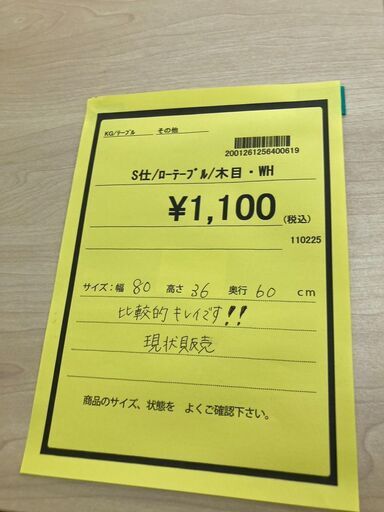 KG/ﾃｰﾌﾞﾙ その他
2001261256400619
S仕/ﾛｰﾃｰﾌﾞﾙ/木目・WH
¥1,100(税込)
110225
サイズ:幅 80 高さ 36 奥行 60 cm
比較的キレイです!!
現状販売
商品のサイズ、状態を よくご確認下さい。